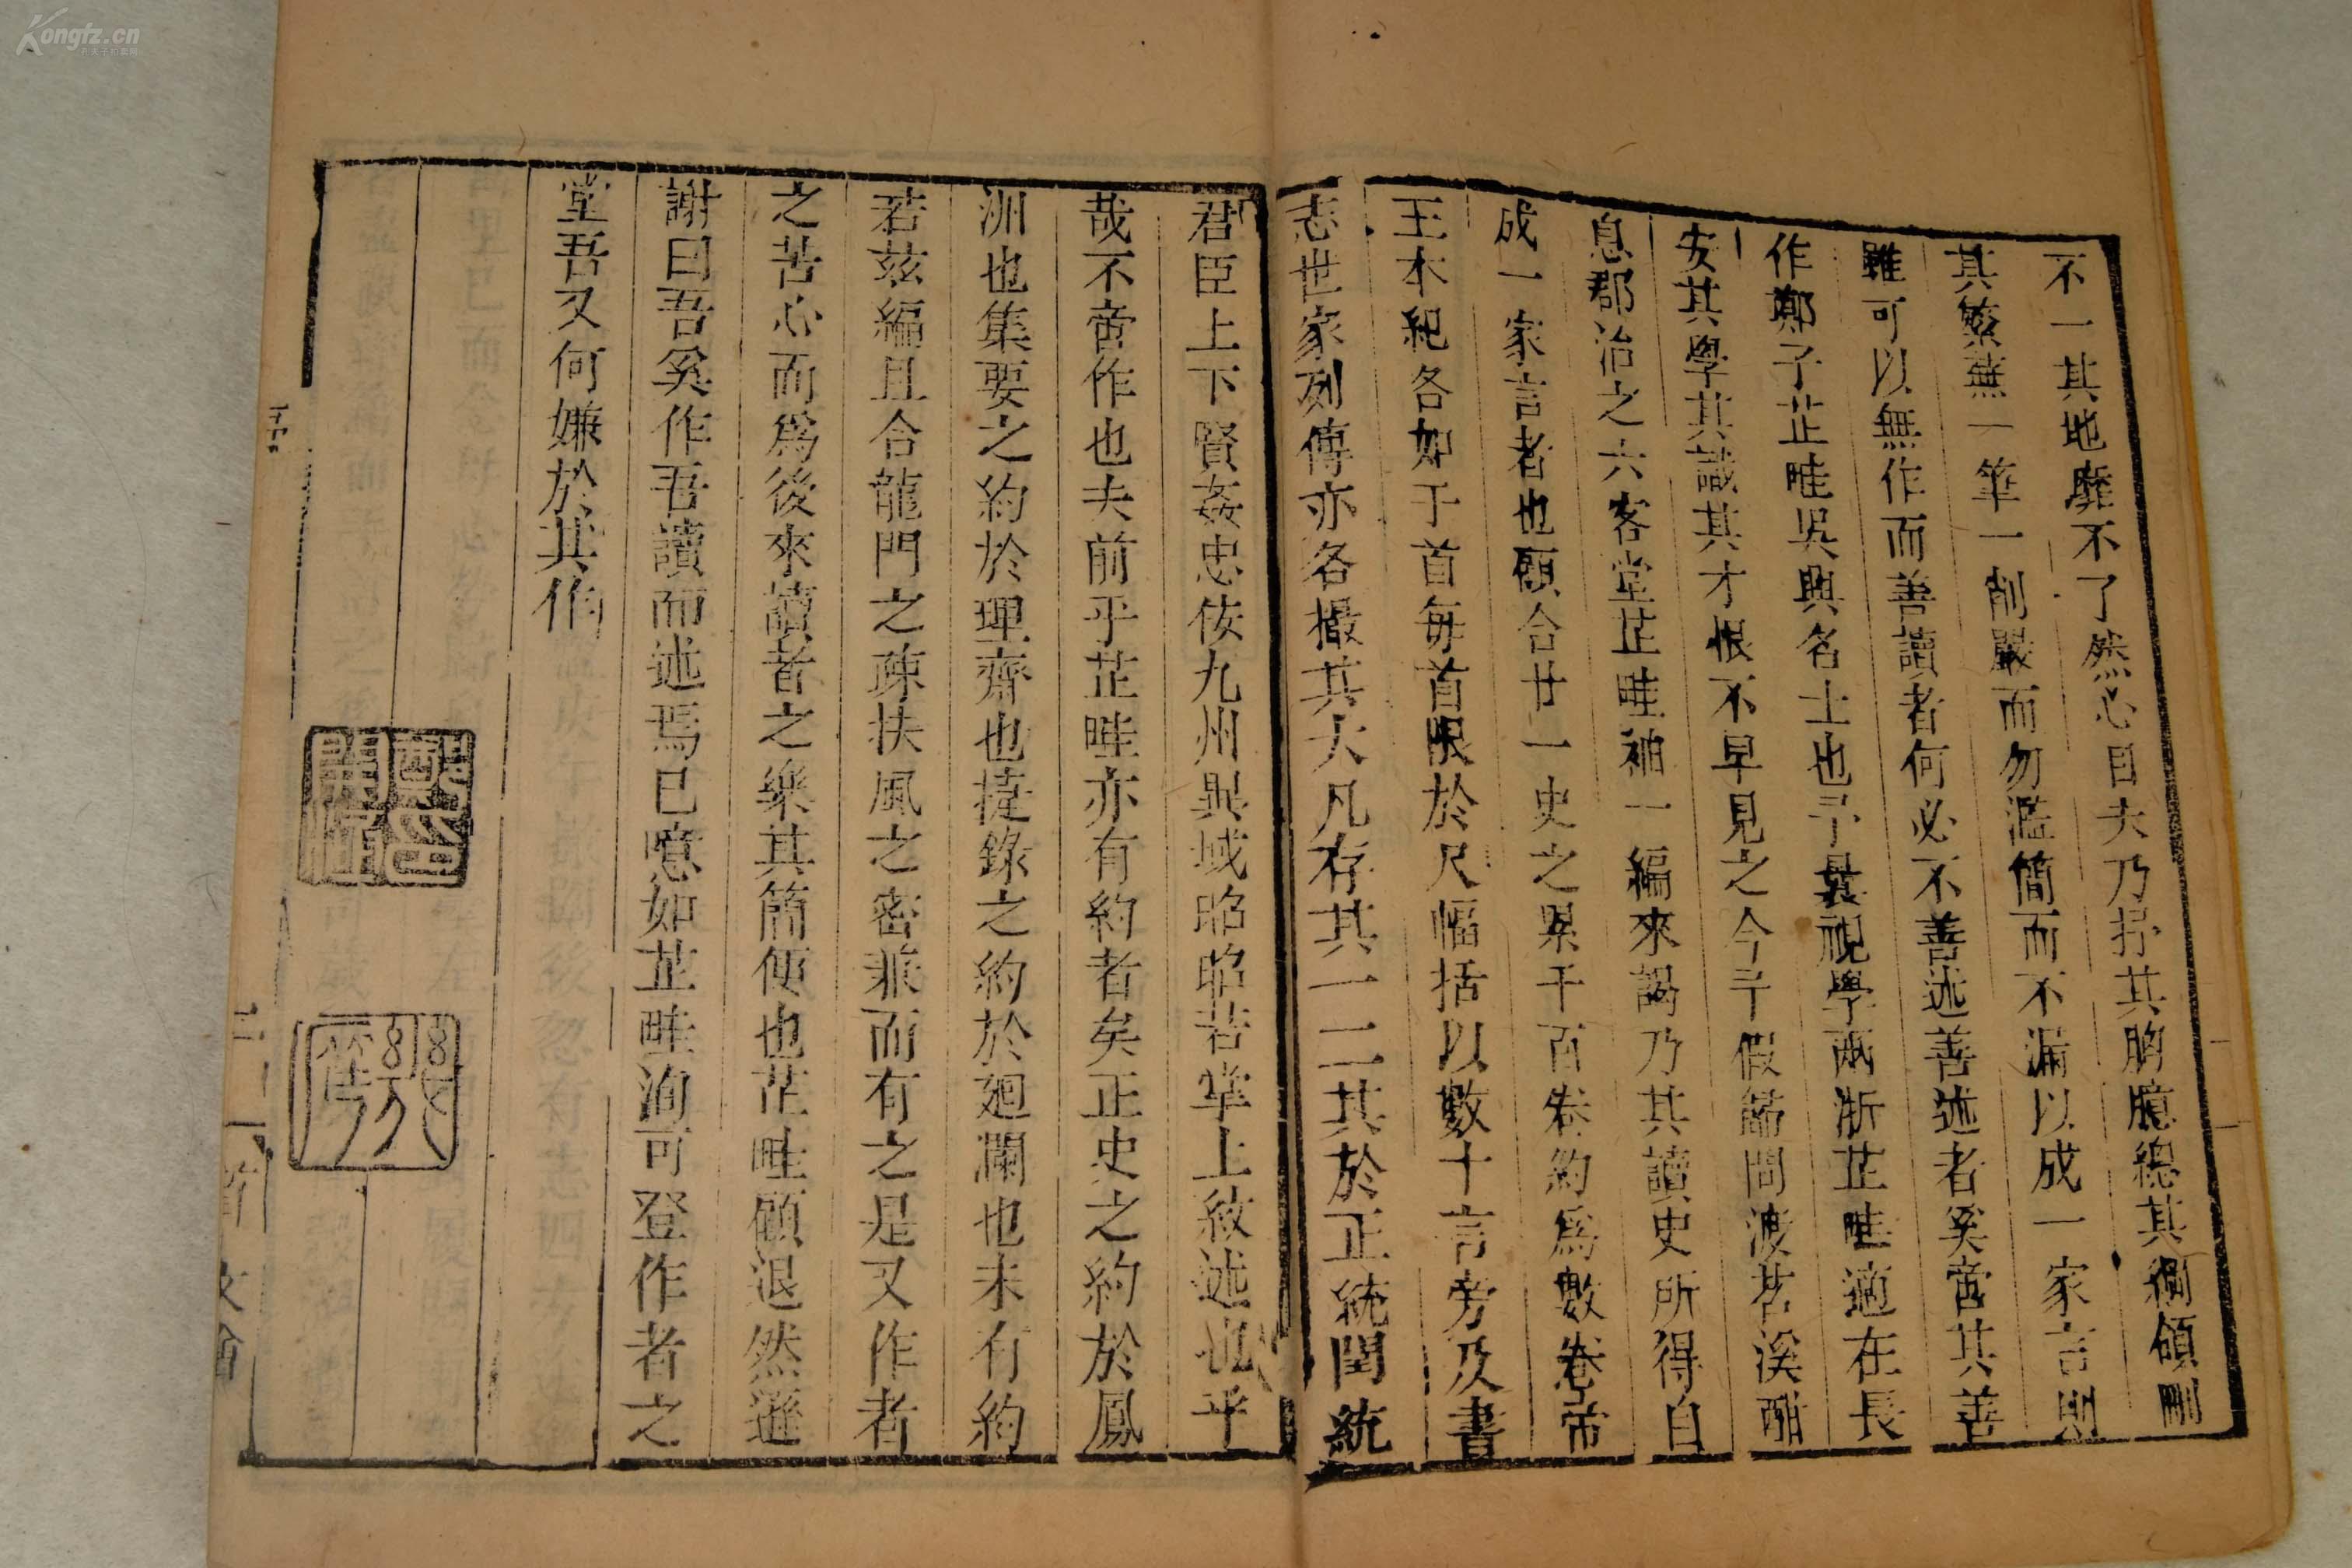 不一其地靡不了然心目夫乃抒其胸臆總其綱領刪
其繁蕪一筆一削嚴而勿濫簡而不漏以成一家言則
雖可以無作而善讀者何必不善述善述者奚啻其善
作鄭子芷畦吳興名士也予曩視學兩浙芷畦適在長
安其學其識其才恨不早見之今年假歸問渡苕溪酣
息郡治之六客堂芷畦袖一編來謁乃其讀史所得自
成一家言者也願合廿一史之累千百卷約爲數卷帝
王本紀各如干首每首限於尺幅括以數十言旁及書
志世家列傳亦各撮其大凡存其一二其於正統閏統
君臣上下賢姦忠佞九州異域昭昭若掌上紋述也乎
哉不啻作也夫前乎芷畦亦有約者矣正史之約於鳳
洲也集要之約於理齋也捷錄之約於廻瀾也未有約
若茲編且合龍門之疎扶風之密兼而有之是又作者
之苦心而爲後來讀者之樂其簡便也芷畦顧退然遜
謝曰吾奚作吾讀而述焉已噫如芷畦洵可登作者之
堂吾又何嫌於其作
Kongfz.cn